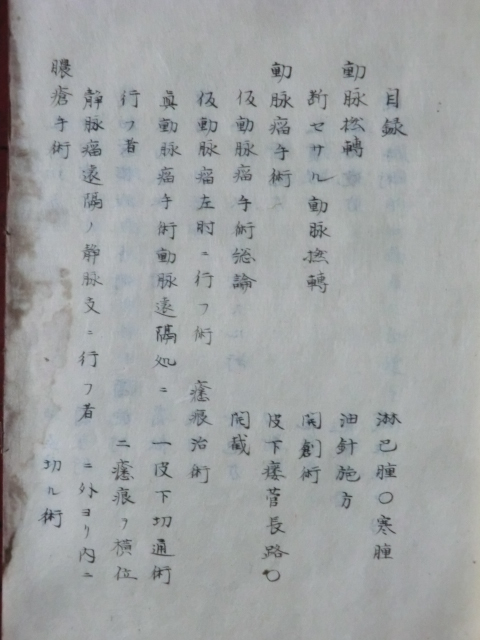 目録
動脉捻轉
断セサル動脉撫轉
動脉瘤手術
仮動脉瘤手術総論
仮動脉瘤左肘ニ行フ術
眞動脉瘤手術動脉遠隔処ニ
行フ者
静脉瘤遠隔ノ静脉支ニ行フ者
膿瘡手術
淋巴腫〇寒腫
油針施方
開創術
皮下瘻管長路〇
開截
瘻痕治術
一皮下切通術
二瘻痕ヲ横位
ニ外ヨリ内ニ
切ル術